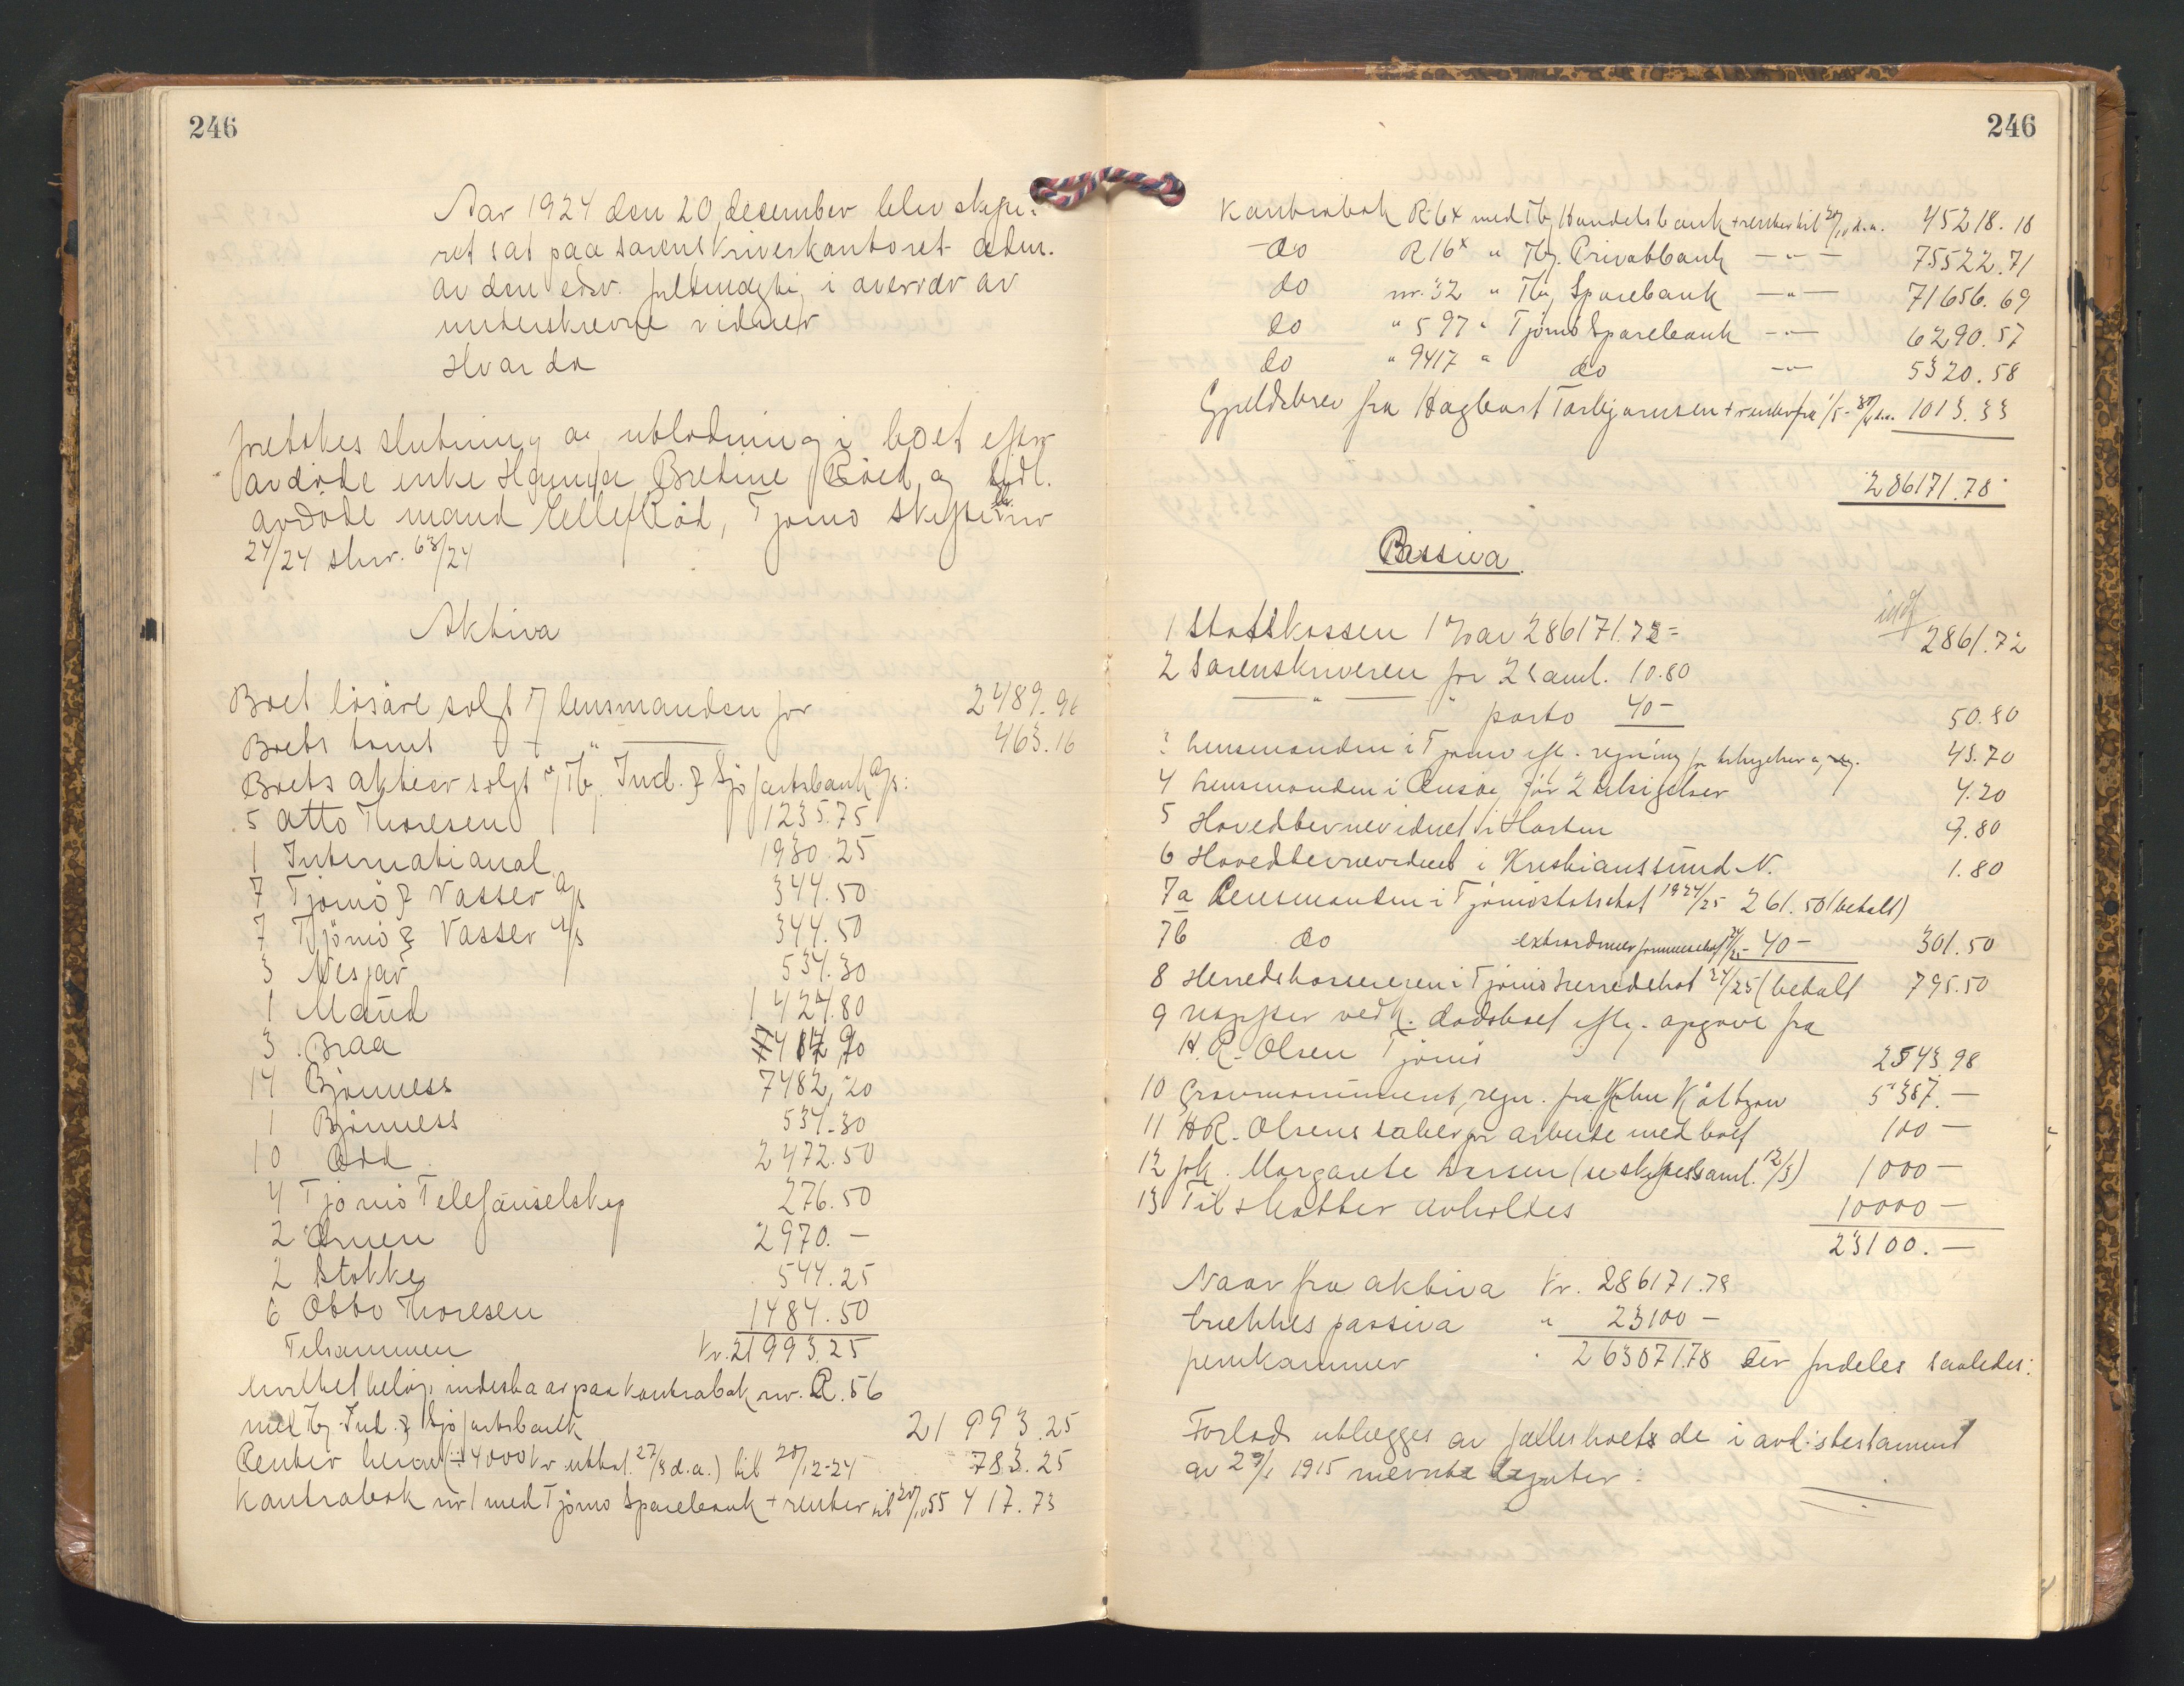 246
Aar 1924 den 20 desember blev skifte-
ret sat paa sorenskriverkontoret adm.
av den edsv. fuldmægtig i overvær av
underskrevne vidner
Hvorda
foretokes slutning av utlodning i boet efter
avdöde enke Bredine Röed og tidl.
avdöde mand Ellef Röd, Tjömö skifte nr
24/24 skr. 63/24
Aktiva
Boet lösöre solgt v/ lensmanden for 2489.96
Boets tomt " 463.16
Boets aktier solgt v/ Tbg. Ind. & Sjöfartsbank A/s:
5 Otto Thoresen 1235.75
1 International 1930.25
7 Tjömö & Vasser A/s 344.50
7 Tjömö & Vasser A/s 344.50
3 Nesjar 534.30
1 Maud 1424.80
3 Braa
14 Björnness 7482,20
1 Björnness 534.30
10 Odd 2472.50
4 Tjömö Telefonselskap 276.50
2 Ørnen 2970.-
2 Stokke 544.25
6 Otto Thoresen 1484.50
Tilsammen Kr. 21993.25
hvilket belöp indestaar paa kontrabok nr. R. 56
med Tbg. Ind. & Sjöfartsbank 21993.25
Renter herav (÷ 4000 kr utbet. 27/8 d.a.) til 20/12-24 783.25
Kontrabok nr 1 med Tjömö Sparebank + renter til 55417.73
246
Kontrabok R 6x med Tbg Handelsbank + renter til d.a. 45218.18
do R 16x " Tbg. Privatbank —"— 75522.71
do nr. 32 " Tbg. Sparebank —"— 71656.69
do " 597 " Tjömö Sparebank —"— 6290.57
do " 9417 " do —"— 5320.58
Gjeldsbrev fra Hagbart Torbjørnsen + renter fra 1013.33
286171.78
Passiva
1 Statskassen 1 % av 286171.78 = 2861.72
2 Sorenskriveren for 2 saml. 10.80
" " porto 40- 50.80
3 Lensmanden i Tjömö efl. regning for 43.70
4 Lensmanden i for 2 tilsigelser 4.20
5 Hovedstevnevidnet i Horten 9.80
6 Hovedstevnevidnet i Kristianssund N. 1.80
7a Lensmanden i Tjömö statsskat 1924/25 261.50 (betalt)
7b do extraordinær formuesskat 24/25 - 40- 301.50
8 Herredskassereren i Tjömö herredskat 24/25 (betalt 795.50
9 Utgifter vedk. dödsboet eftg. opgave fra
H. R. Olsen Tjömö 2543.98
10 Gravmonument, regn. fra John 5387.-
11 H R. Olsens salær for arbeide med boet 100-
12 frk. Margarete Larsen (se skiftessaml. 12/3) 1000-
13 Til skatter avholdes 10000-
23100.-
Naar fra aktiva Kr. 286171.78
trekkes passiva " 23100-
fremkommer " 263071.78 der fordeles saaledes:
Forlods utlægges av fællesboets de i avd:s testament
av 29/1 1915 nævnte legater: